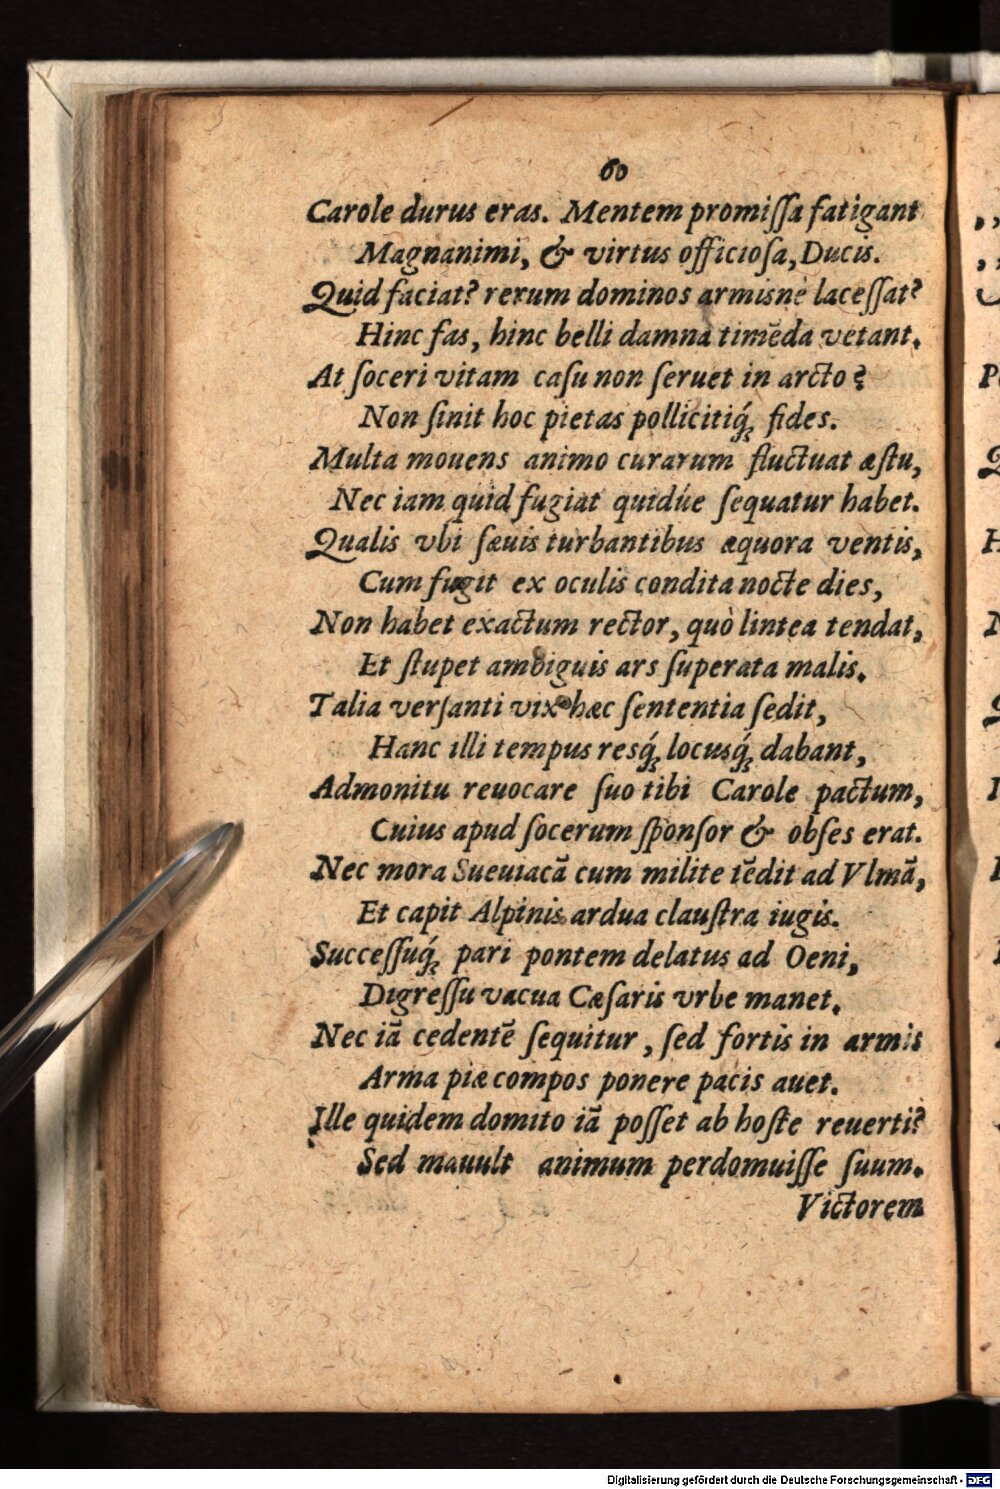 60
Carole durus eras. Mentem promiſſa fatigant
Magnanimi, & virtus officioſa, Ducis.
Quid faciat? rerum dominos armisnè laceſſat?
Hinc fas, hinc belli damna timēda vetant.
At ſoceri vitam caſu non ſeruet in arcto?
Non ſinit hoc pietas pollicitiq́; fides.
Multa mouens animo curarum fluctuat æſtu,
Nec iam quid fugiat quidúe ſequatur habet.
Qualis vbi ſæuis turbantibus æquora ventis,
Cum fugit ex oculis condita nocte dies,
Non habet exactum rector, quò lintea tendat,
Et ſtupet ambiguis ars ſuperata malis.
Talia verſanti vix hæc ſententia ſedit,
Hanc illi tempus resq́; locusq́; dabant,
Admonitu reuocare ſuo tibi Carole pactum,
Cuius apud ſocerum ſponſor & obſes erat.
Nec mora Sueuiacā cum milite tēdit ad Vlmā,
Et capit Alpinis ardua clauſtra iugis.
Succeſſuq́; pari pontem delatus ad Oeni,
Digreſſu vacua Cæſaris vrbe manet.
Nec iā cedentē ſequitur, ſed fortis in armis
Arma piæ compos ponere pacis auet.
Ille quidem domito iā poſſet ab hoſte reuerti?
Sed mauult animum perdomuiſſe ſuum.
Victorem
Digitalisierung gefördert durch die Deutsche Forschungsgemeinschaft - DFG